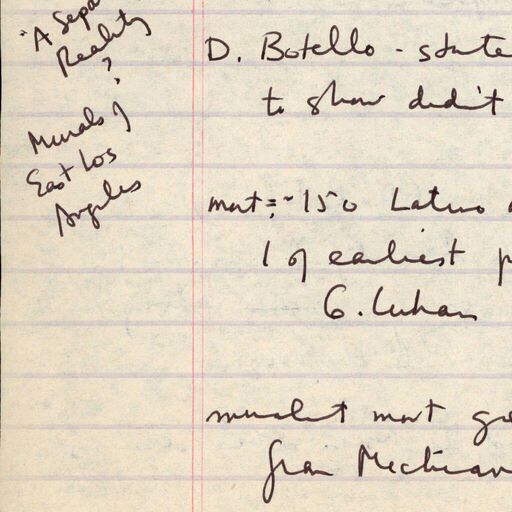 "A Sepa
Reality
?
Murals of
East Los
Angeles
D. Botello - state
to show didn't
most = ~150 Latino
1 of earliest p
G. Luhan
muralist most gre
from Mechican